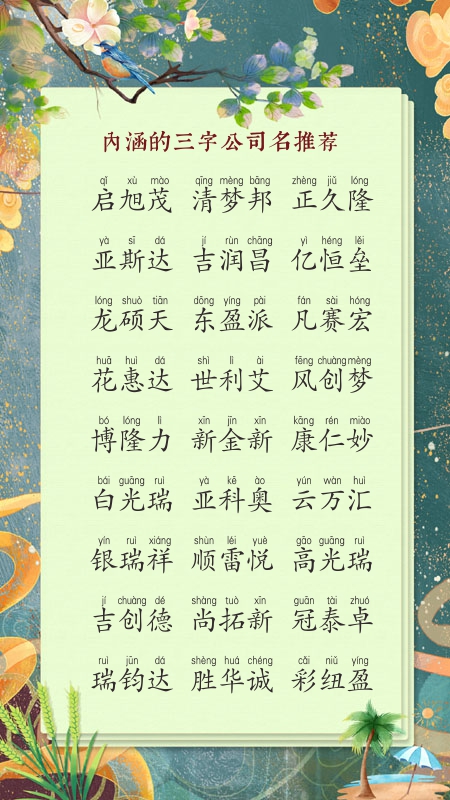 内涵的三字公司名推荐
qǐ xù mào qīng mèng bāng zhèng jiǔ lóng
启旭茂 清梦邦 正久隆
yà sī dá jí rùn chāng yì héng lěi
亚斯达 吉润昌 亿恒垒
lóng shuò tiān dōng yíng pài fán sài hóng
龙硕天 东盈派 凡赛宏
huā huì dá shì lì ài fēng chuàng mèng
花惠达 世利艾 风创梦
bó lóng lì xīn jīn xīn kāng rén miào
博隆力 新金新 康仁妙
bái guāng ruì yà kē ào yún wàn huì
白光瑞 亚科奥 云万汇
yín ruì xiáng shùn léi yuè gāo guāng ruì
银瑞祥 顺雷悦 高光瑞
jí chuàng dé shàng tuò xīn guān tài zhuó
吉创德 尚拓新 冠泰卓
ruì jūn dá shèng huá chéng cǎi niǔ yíng
瑞钧达 胜华诚 彩纽盈